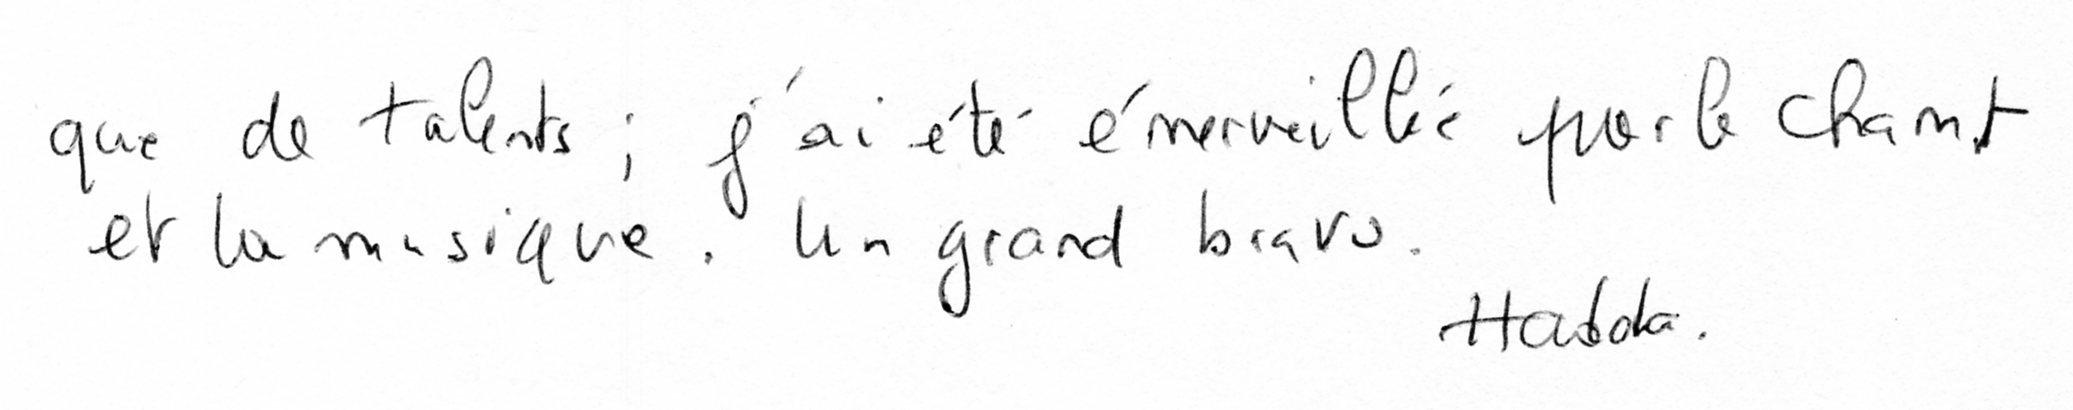 que de talents ; j'ai été émerveillée par le chant
et la musique. Un grand bravo.
Hadda.